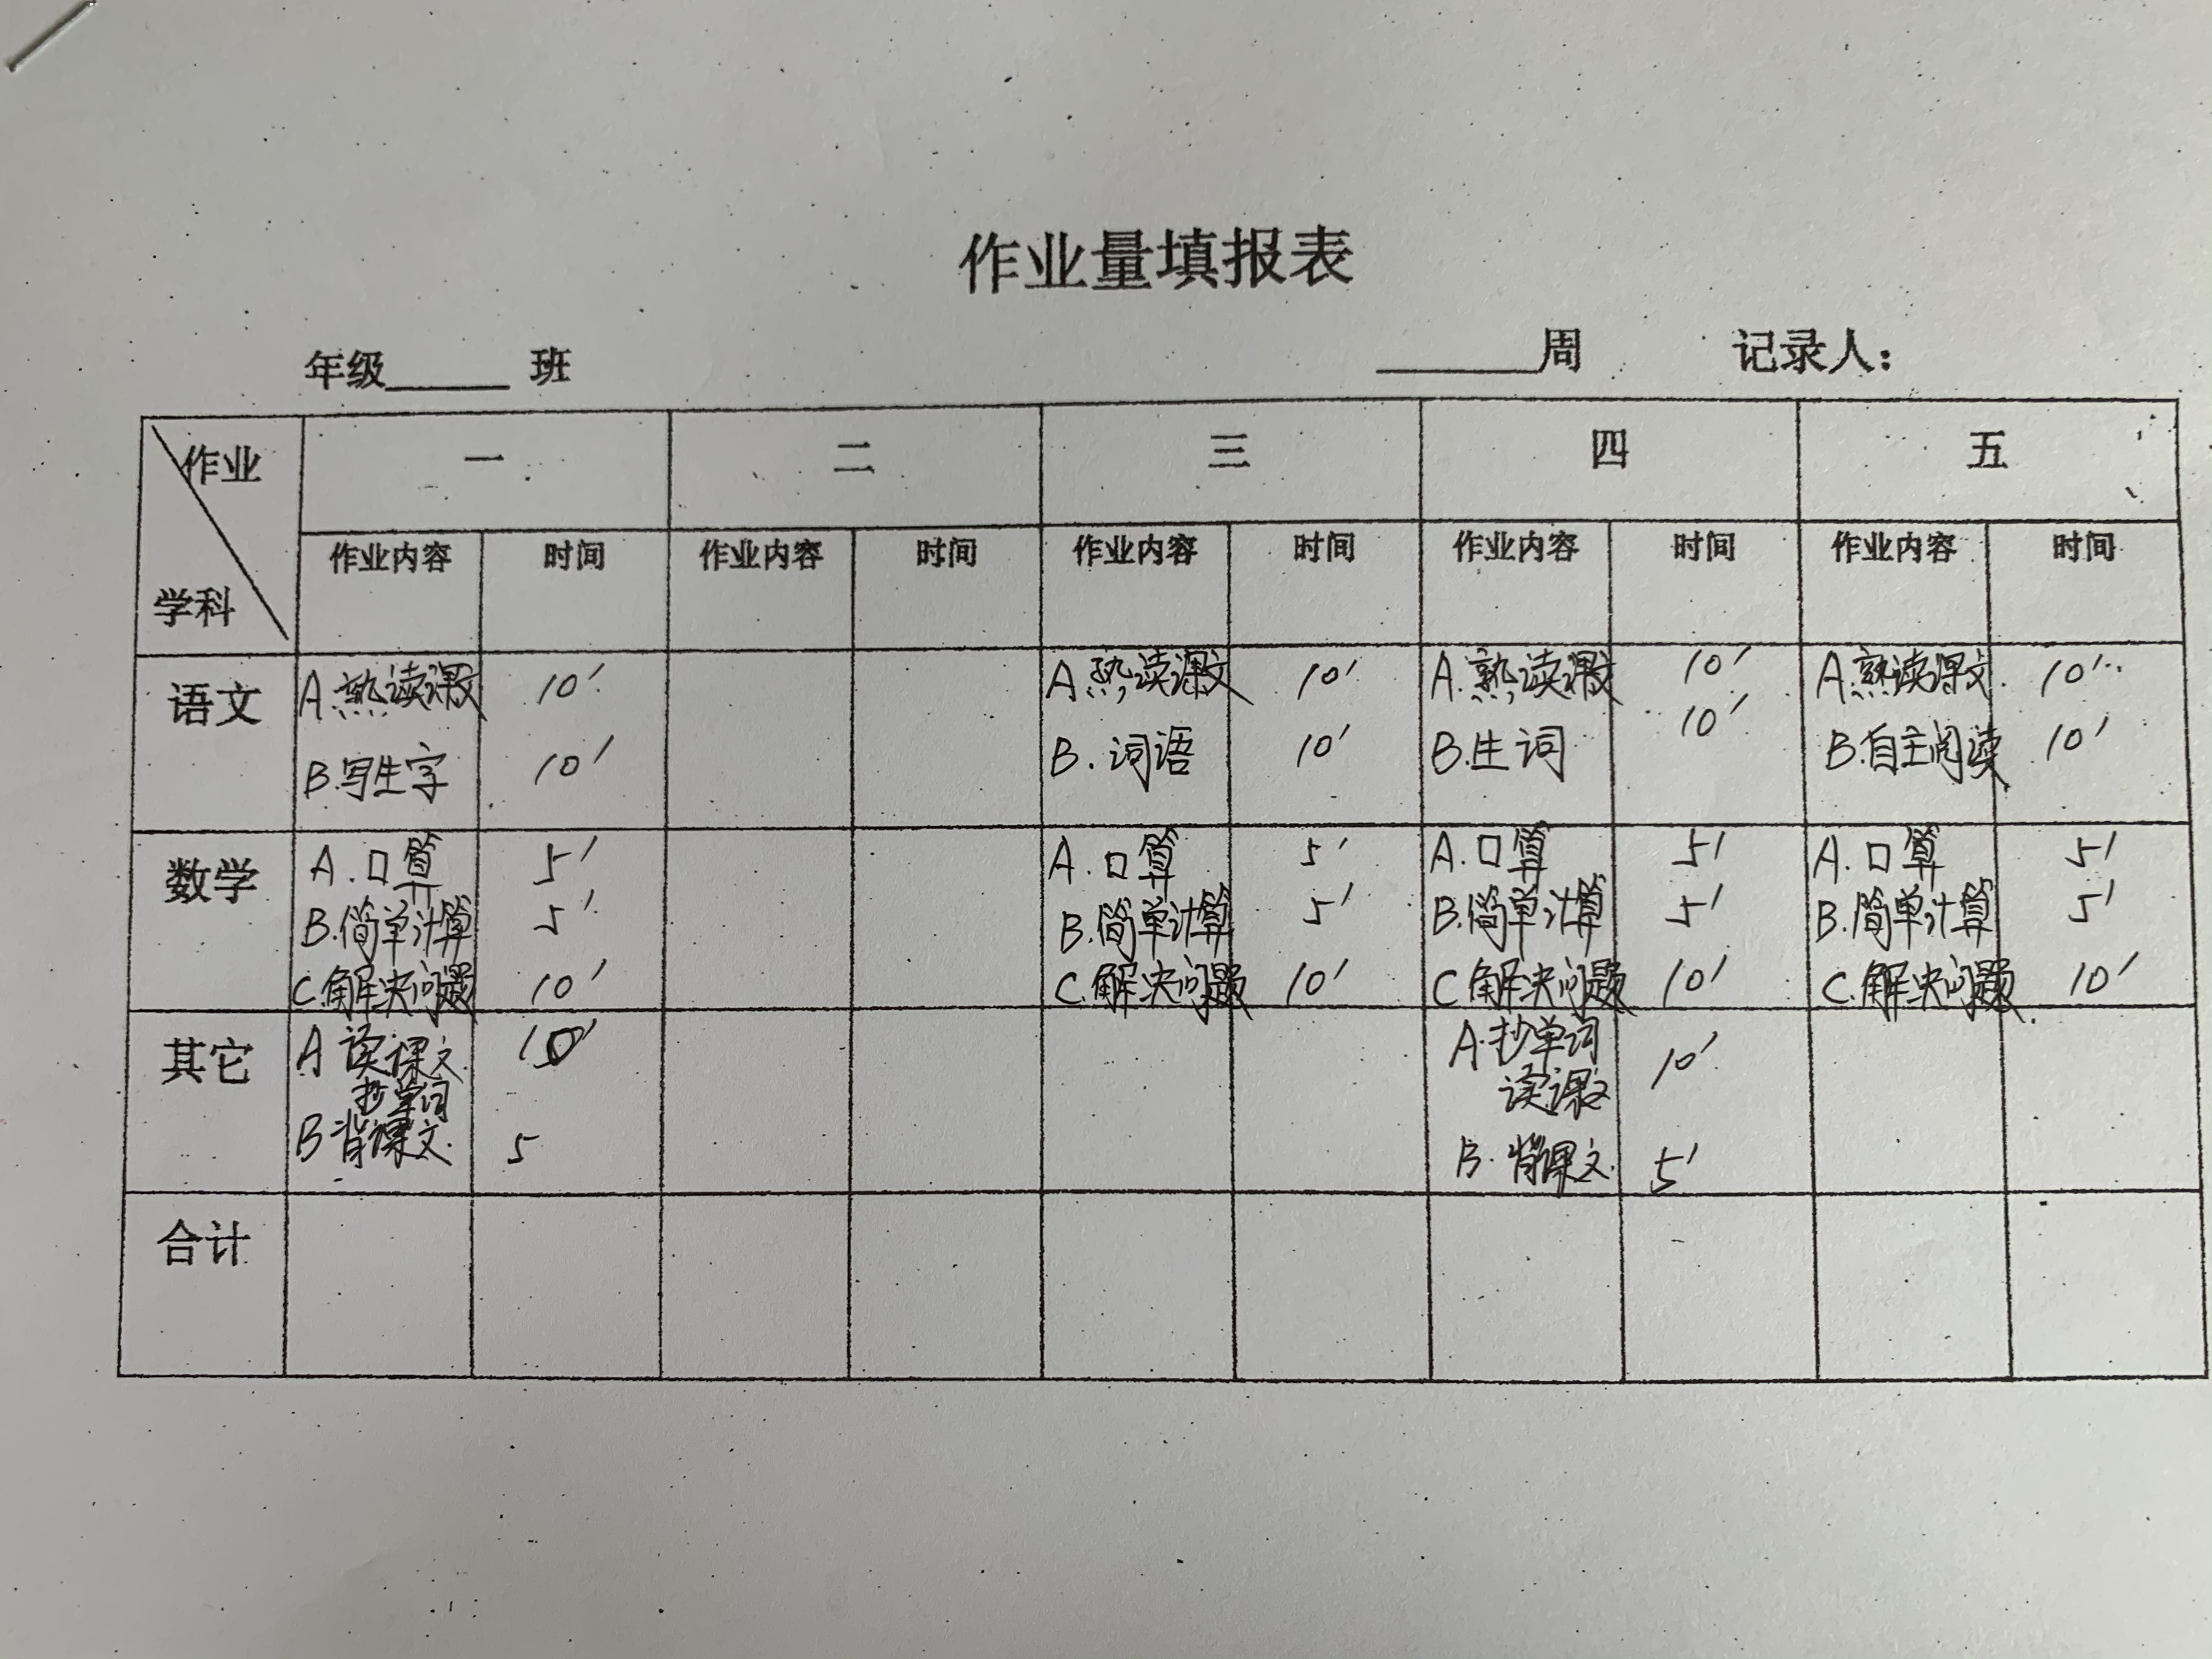 作业量填报表
年级______ 班 ______周 记录人：
作业 一 二 三 四 五
学科 作业内容 时间 作业内容 时间 作业内容 时间 作业内容 时间 作业内容 时间
语文 A.熟读课文 10′ A.熟读课文 10′ A.熟读课文 10′ A.熟读课文 10′
B.写生字 10′ B.词语 10′ B.生词 10′ B.自主阅读 10′
数学 A.口算 5′ A.口算 5′ A.口算 5′ A.口算 5′
B.简单计算 5′ B.简单计算 5′ B.简单计算 5′ B.简单计算 5′
C.解决问题 10′ C.解决问题 10′ C.解决问题 10′ C.解决问题 10′
其它 A 读课文 10′ A.抄单词 10′
抄单词 读课文
B 背课文. 5 B.背课文. 5′
合计